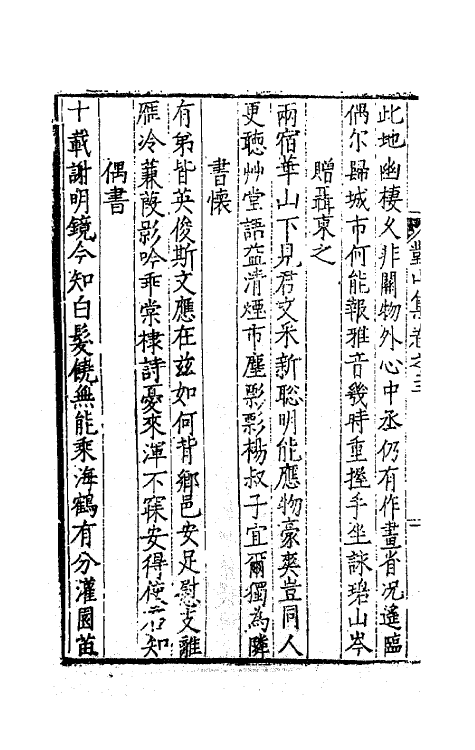 對山集卷之三
此地幽棲久非關物外心中丞仍有作畫省況遙臨
偶尔歸城市何能報雅音幾時重握手坐詠碧山岑
贈聶東之
兩宿華山下見君文采新聰明能應物豪爽豈同人
更聽艸堂語益清煙市塵飄飄楊叔子宜爾獨為隣
書懷
有弟皆英俊斯文應在茲如何背鄉邑安足慰支離
雁冷蒹葭影吟乖棠棣詩憂來渾不寐安得使君知
偶書
十載謝明鏡今知白髮饒無能乘海鶴有分灌園苗